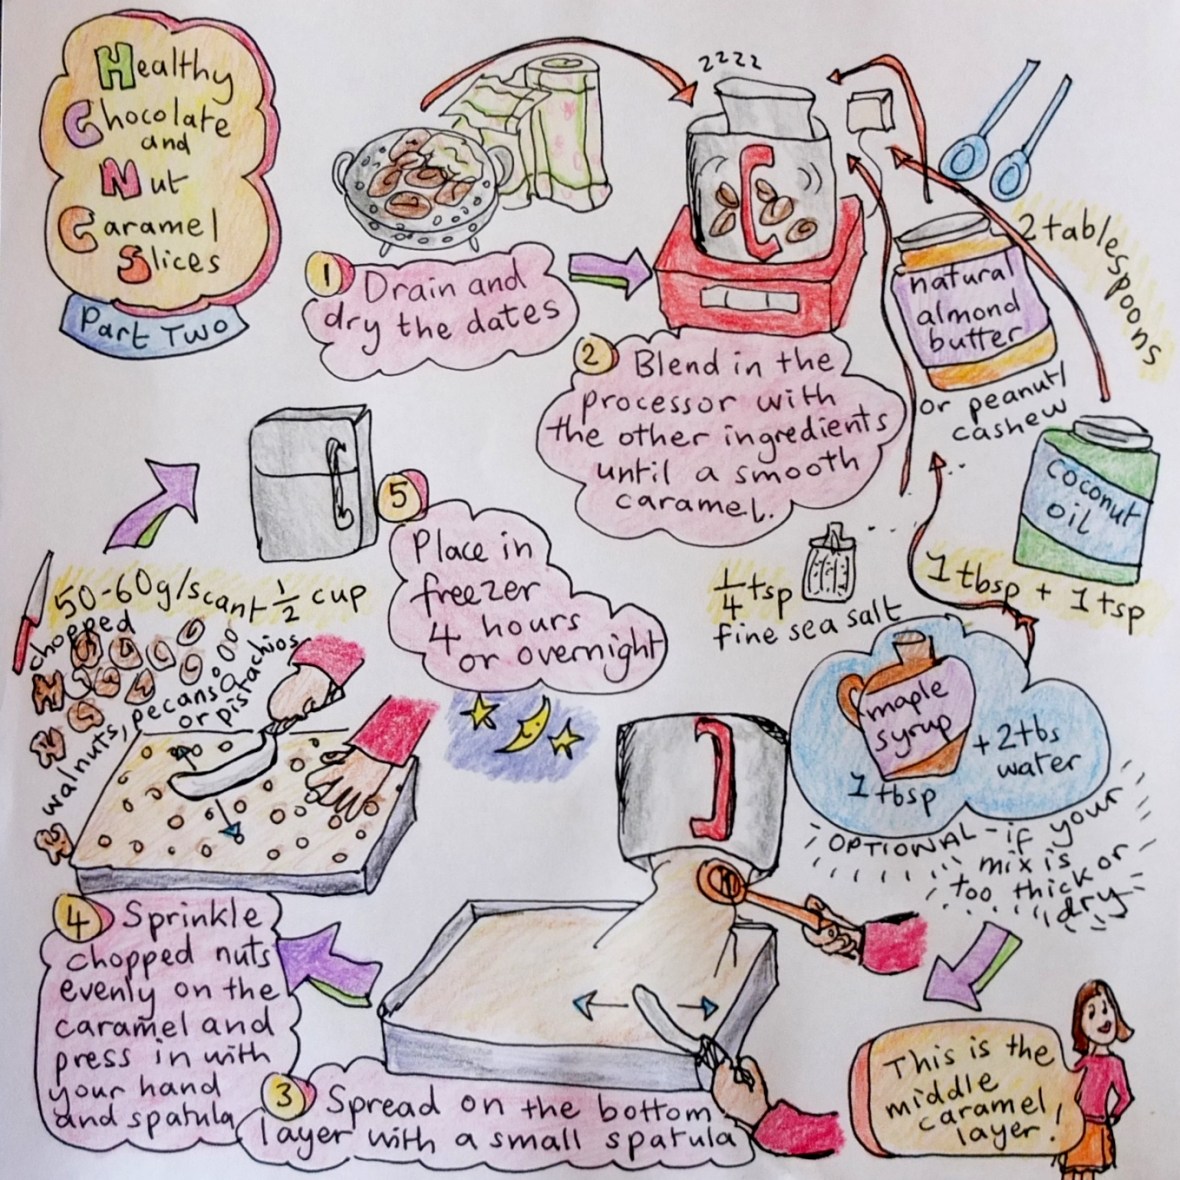 Healthy
Chocolate
and
Nut
Caramel
Slices
Part Two
zzzz
1
Drain and
dry the dates
2
Blend in the
processor with
the other ingredients
until a smooth
caramel.
2 tablespoons
natural
almond
butter
or peanut/
cashew
coconut
oil
1 tbsp + 1 tsp
1/4 tsp
fine sea salt
maple
syrup
1 tbsp
+ 2 tbs
water
OPTIONAL - if your
mix is
too thick or
dry
This is the
middle
caramel
layer!
3
Spread on the bottom
layer with a small spatula
4
Sprinkle
chopped nuts
evenly on the
caramel and
press in with
your hand
and spatula
50-60g/scant 1/2 cup
chopped
walnuts, pecans
or pistachios
5
Place in
freezer
4 hours
or overnight